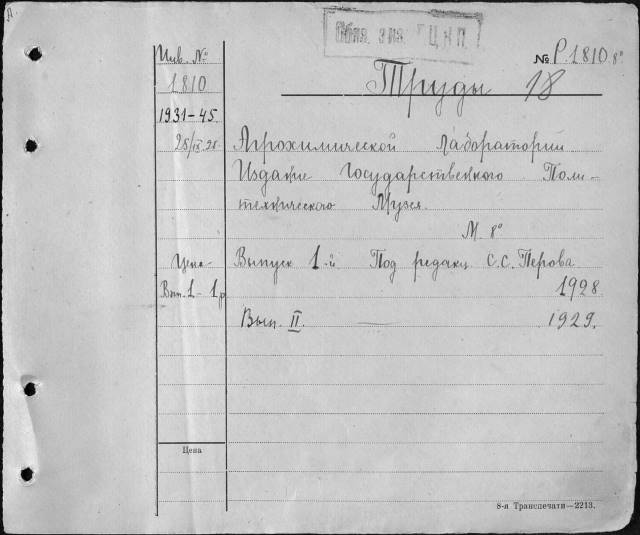 Обяз. экз. ГЦКП
№ Р.1810.8°
Труды 18
Инв. №
1810
1931-45
25/IX.28
Агрохимической лаборатории
Издание Государственного Поли-
технического Музея.
М. 8°
Цена
Выпуск 1-й Под редакц. С.С. Перова
Вып.1-1р
1928
Вып. II. — 1929.
Цена
8-я Транспечати—2213.